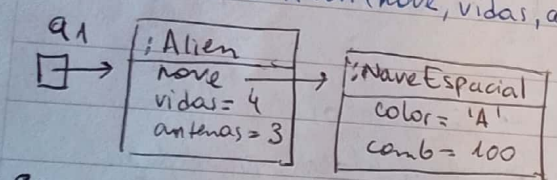 nave, vidas, a
a1
:Alien
nave
vidas = 4
antenas = 3
:NaveEspacial
color = 'A'
comb = 100